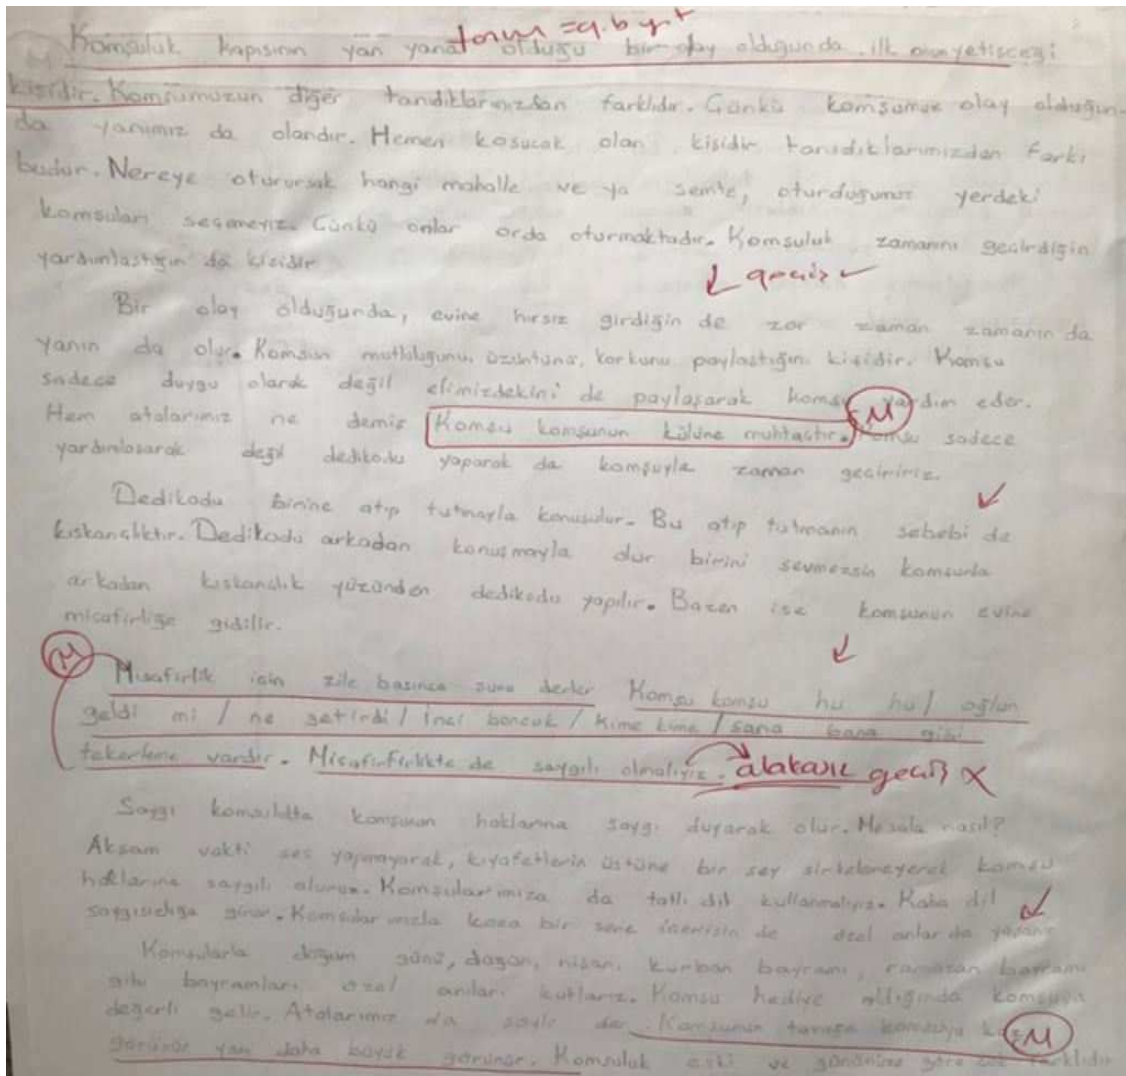 tanım = a.b y.t
Komşuluk kapısının yan yana olduğu bir olay olduğunda ilk onun yetişeceği
kişidir. Komşumuzun diğer tanıdıklarınızdan farklıdır. Çünkü komşumuz olay olduğun-
da yanımız da olandır. Hemen koşucak olan kişidir tanıdıklarımızdan farkı
budur. Nereye oturursak hangi mahalle ve ya semte, oturduğumuz yerdeki
komşuları seçmeyiz. Çünkü onlar orda oturmaktadır. Komşuluk zamanını geçirdiğin
yardımlaştığın da kişidir
geçiş
Bir olay olduğunda, evine hırsız girdiğin de zor zaman zamanın da
yanın da olur. Komşun mutluluğunu, üzüntünü, korkunu paylaştığın kişidir. Komşu
sadece duygu olarak değil elimizdekini de paylaşarak komşu yardım eder.
M
Hem atalarımız ne demiş Komşu komşunun külüne muhtaçtır. Komşu sadece
yardımlaşarak değil dedikodu yaparak da komşuyla zaman geçiririz.
Dedikodu birine atıp tutmayla konuşulur. Bu atıp tutmanın sebebi de
kıskançlıktır. Dedikodu arkadan konuşmayla olur birini sevmezsin komşunla
arkadan kıskançlık yüzünden dedikodu yapılır. Bazen ise komşunun evine
misafirliğe gidilir.
M
Misafirlik için zile basınca şunu derler Komşu komşu hu hu / oğlun
geldi mi / ne getirdi / inci boncuk / kime kime / sana bana gibi
tekerleme vardır. Misafirlikte de saygılı olmalıyız. alakasız geçiş X
Saygı komşulukta komşunun haklarına saygı duyarak olur. Mesala nasıl?
Akşam vakti ses yapmayarak, kıyafetlerin üstüne bir şey sirkelemeyerek komşu
haklarına saygılı oluruz. Komşularımıza da tatlı dil kullanmalıyız. Kaba dil
saygısızlığa girer. Komşularımızla koca bir sene içerisin de özel anlar da yaşanır
Komşularla doğum günü, düğün, nişan, kurban bayramı, ramazan bayramı
gibi bayramları özel anıları kutlarız. Komşu hediye aldığında komşuya
değerli gelir. Atalarımız da şöyle der Komşunun tavuğu komşuya kaz
M
görünür yanı daha büyük görünür. Komşuluk eski ve günününe göre çok farklıdır